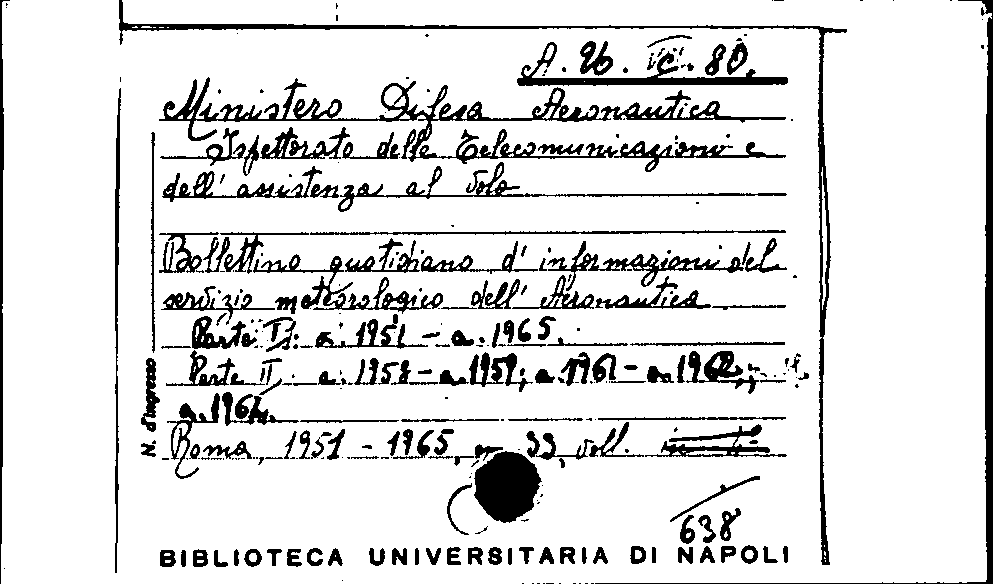 A. 26. VI. C. 80.
Ministero Difesa Aeronautica
Ispettorato delle Telecomunicazioni e
dell' assistenza al Volo
Bollettino quotidiano d' informazioni del
servizio meteorologico dell' Aeronautica
Parte I: a. 1951 - a. 1965.
Parte II: a. 1958 - a. 1959; a. 1961 - a. 1962;
a. 1964.
Roma, 1951 - 1965, 33, voll.
638
N. d'ingresso
BIBLIOTECA UNIVERSITARIA DI NAPOLI